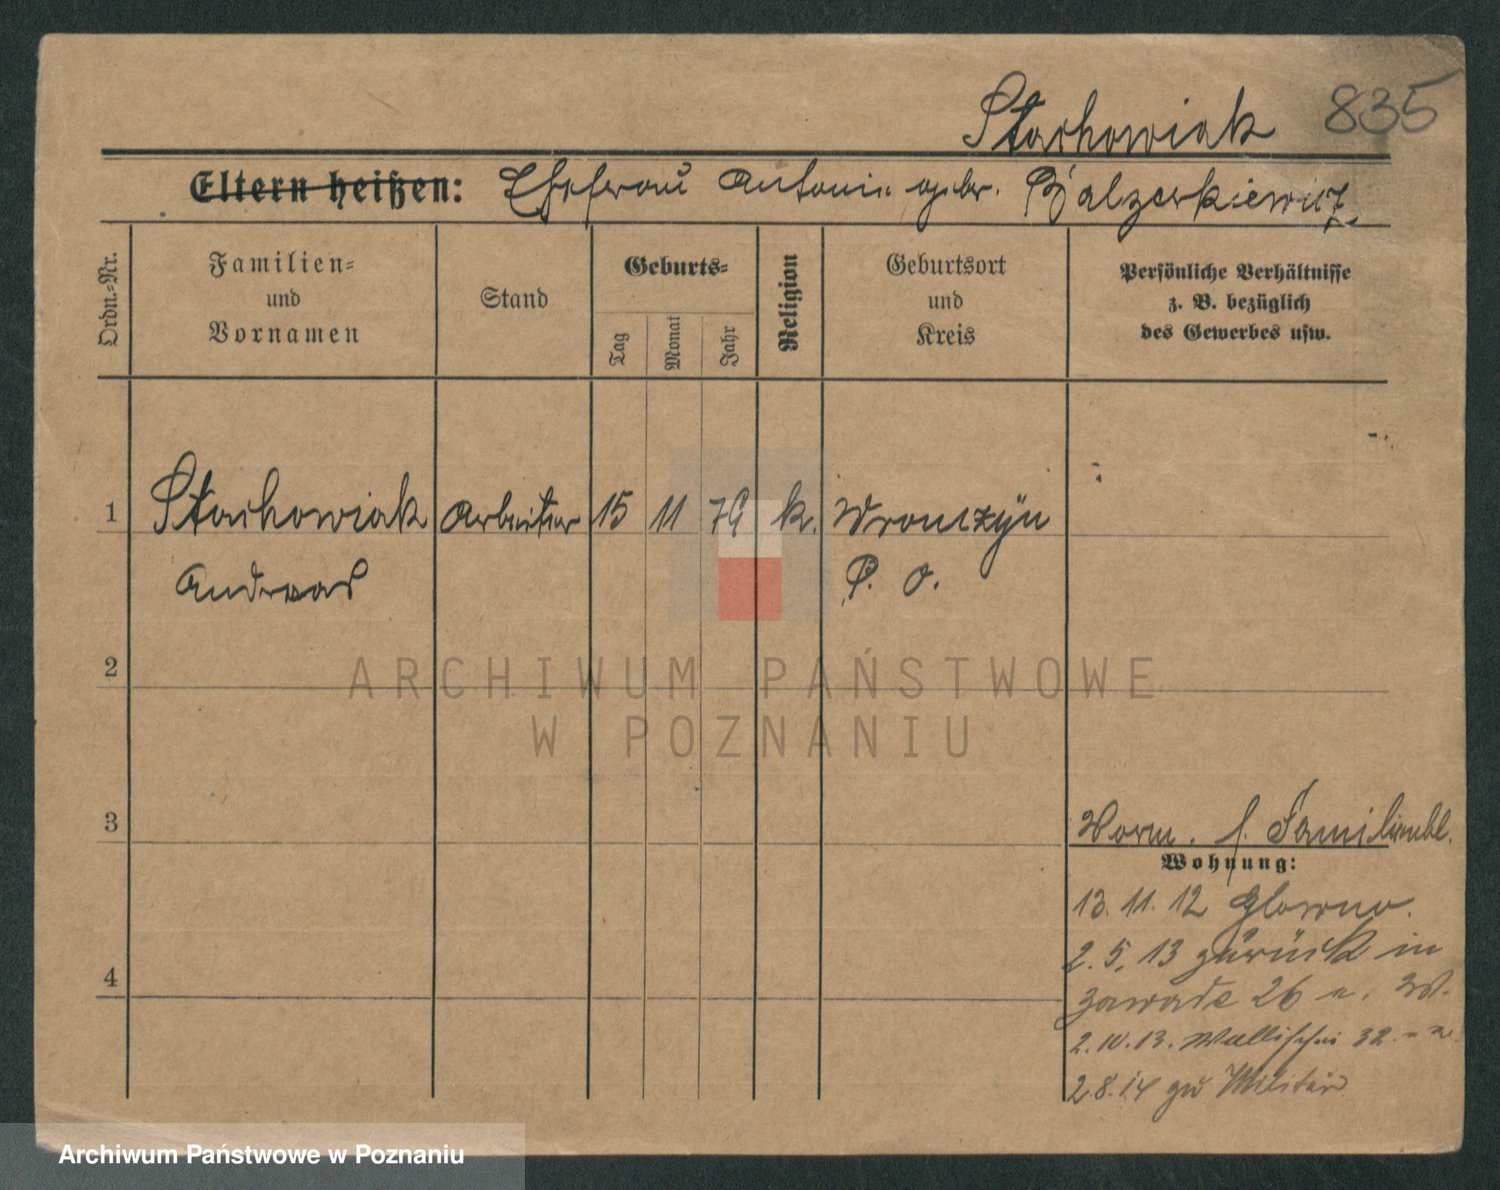 Stachowiak 835
Eltern heißen: Ehefrau Antonie gebr. Balzerkiewicz
Ordn.-Nr.
Familien-
und
Vornamen
Stand
Geburts-
Tag
Monat
Jahr
Religion
Geburtsort
und
Kreis
Persönliche Verhältnisse
z. B. bezüglich
des Gewerbes usw.
1 Stachowiak Arbeiter 15 11 79 k. Wronczyn
Andreas P. O.
2
3
4
Vorm. s. Familienbl.
Wohnung:
13. 11. 12 Glowno.
2. 5. 13 zurück in
Zawade 26
2. 10. 13. Wallischei 32.
2. 8. 14 zu Militär
ARCHIWUM PAŃSTWOWE
W POZNANIU
Archiwum Państwowe w Poznaniu